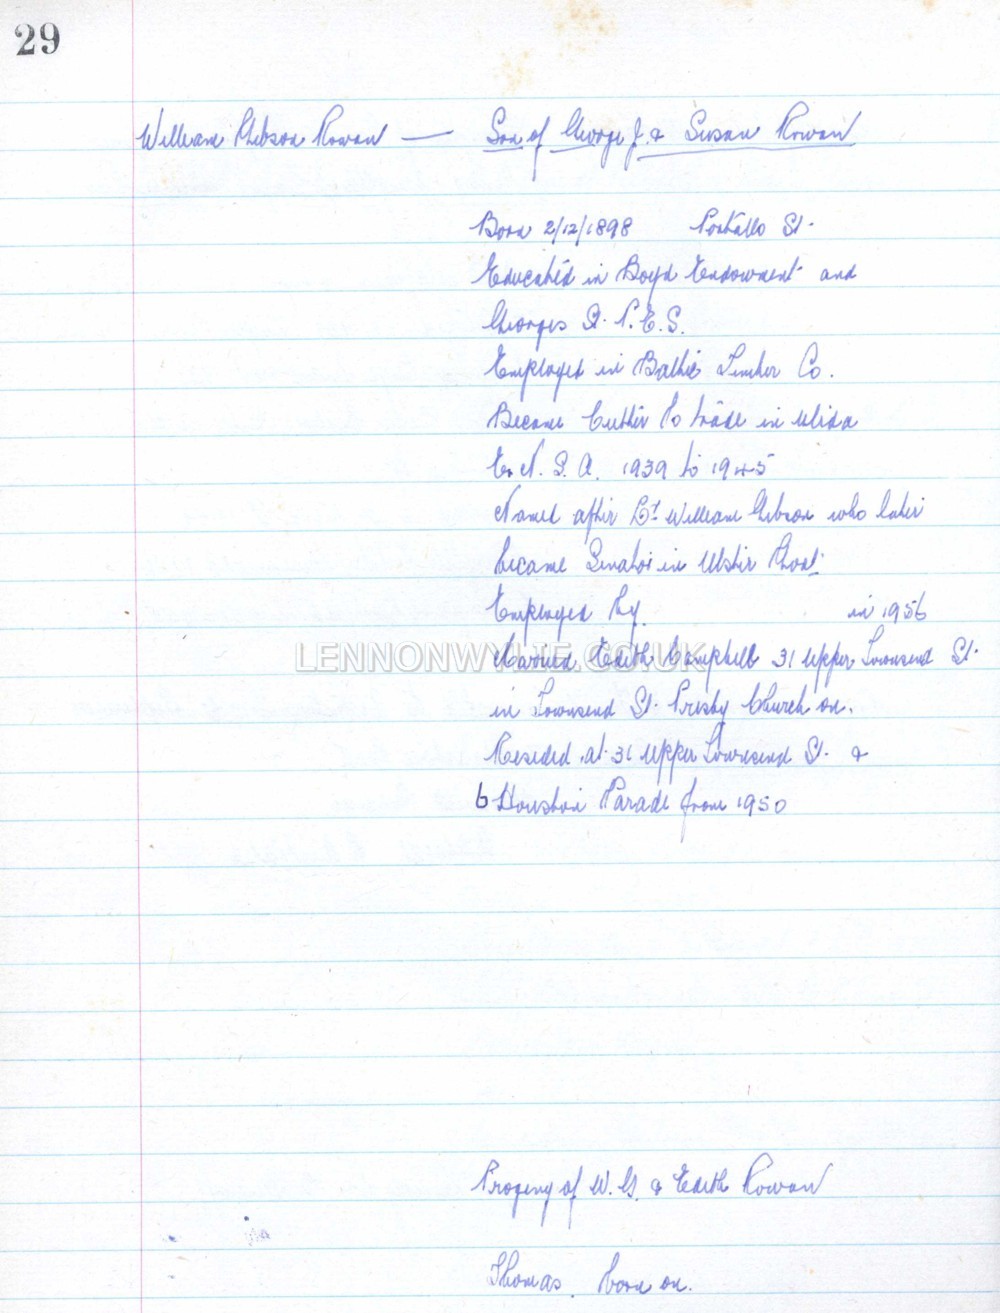 29
William Gibson Rowan — Son of George J. & Susan Rowan
Born 2/12/1898 Portallo St.
Educated in Boyd Endowment and
Georges St. P.E.S.
Employed in Baltic Timber Co.
Became Cutter to trade in
1939 to 1945
Named after Ct William Gibson who later
became Senator in Ulster Govt.
Employed by in 1956
LENNONWYLIE.CO.UK
Married Edith Campbell 31 Upper Townsend St.
in Townsend St. Presby Church on.
Resided at 31 Upper Townsend St. &
6 Houston Parade from 1950
Progeny of W. G. & Edith Rowan
Thomas. born on.